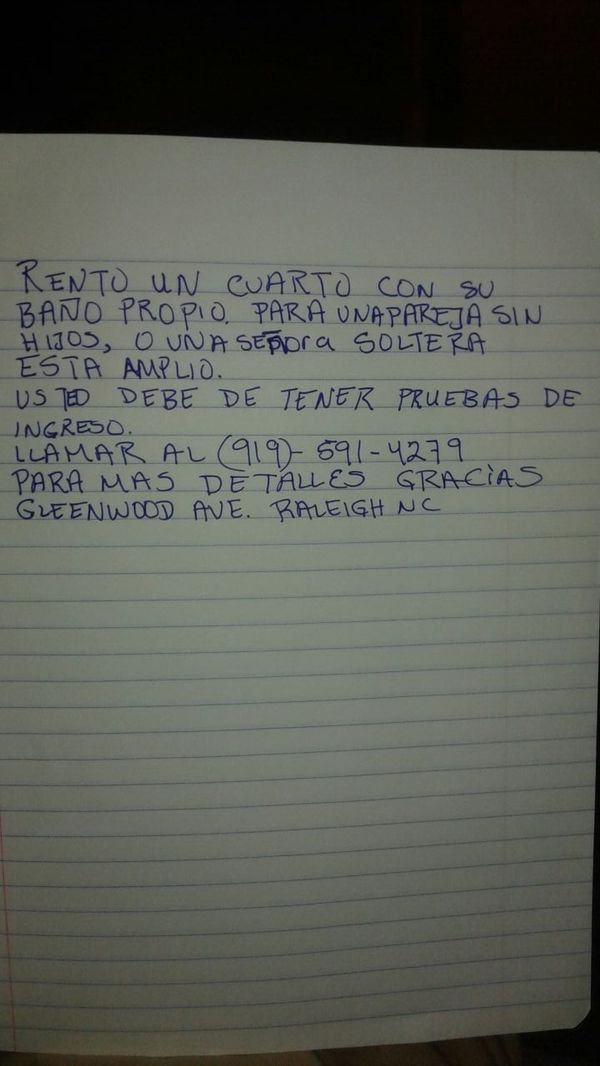 RENTO UN CUARTO CON SU
BAÑO PROPIO. PARA UNA PAREJA SIN
HIJOS, O UNA SEÑORA SOLTERA
ESTA AMPLIO.
USTED DEBE DE TENER PRUEBAS DE
INGRESO.
LLAMAR AL (919)-591-4279
PARA MAS DETALLES GRACIAS
GLEENWOOD AVE. RALEIGH NC